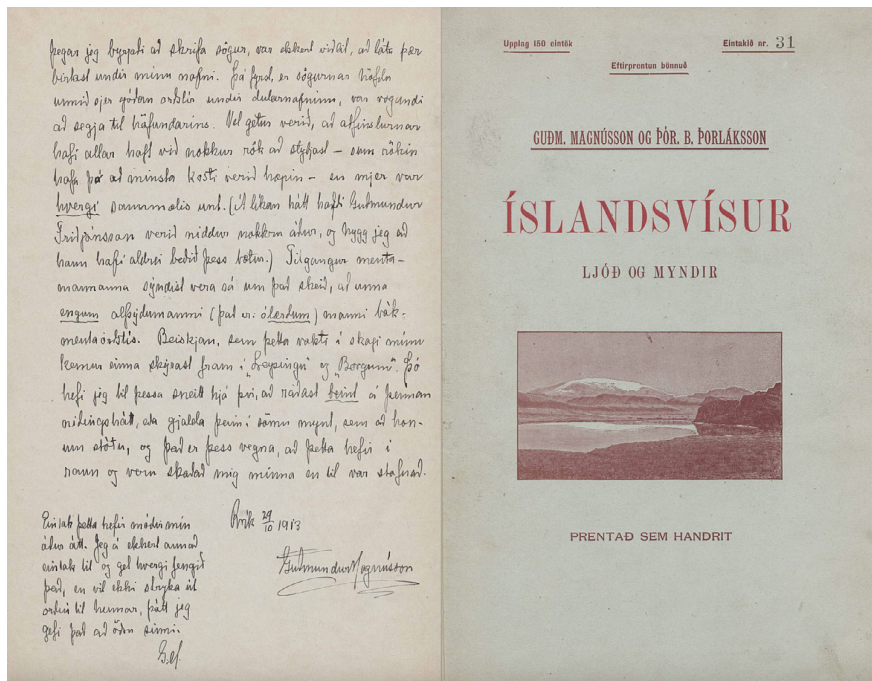 þegar jeg byrjaði að skrifa sögur, var ekkert viðlit, að láta þær
birtast undir mínu nafni. Þá fyrst, er sögurnar höfðu
unnið sjer góðan orðstír undir dularnafninu, var vogandi
að segja til höfundarins. Vel getur verið, að aðfinslurnar
hafi allar haft við nokkur rök að styðjast – sum rökin
hafa þó að minsta kosti verið hæpin – en mjer var
hvergi sammælis unt. (Á líkan hátt hafði Guðmundur
Friðjónsson verið níddur nokkru áður, og hygg jeg að
hann hafi aldrei beðið þess bætur.) Tilgangur menta-
mannanna sýndist vera sá um það skeið, að unna
engum alþýðumanni (það er: ólærðum) manni bók-
mentaorðstírs. Beiskjan, sem þetta vakti í skapi mínu
kemur einna skýrast fram í "Leysingu" og "Borgum". Þó
hefi jeg til þessa sneitt hjá því, að ráðast beint á þennan
níðingshátt, eða gjalda þeim í sömu mynt, sem að hon-
um stóðu, og það er þess vegna, að þetta hefir í
raun og veru skaðað mig minna en til var stofnað.
Rvík 29/10 1913
Guðmundur Magnússon
Eintak þetta hefir móðir mín
áður átt. Jeg á ekkert annað
eintak til og get hvergi fengið
það, en vil ekki stryka út
orðin til hennar, þótt jeg
gefi það að öðru sinni.
G.M.
Upplag 150 eintök
Eintakið nr. 31
Eftirprentun bönnuð
GUÐM. MAGNÚSSON OG ÞÓR. B. ÞORLÁKSSON
ÍSLANDSVÍSUR
LJÓÐ OG MYNDIR
PRENTAÐ SEM HANDRIT